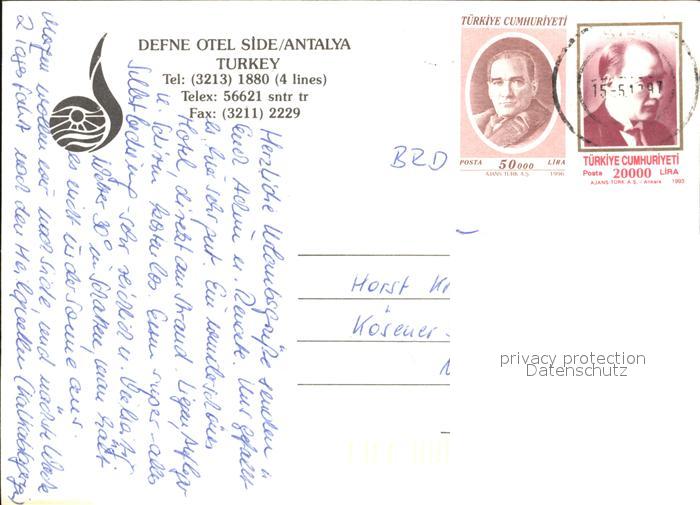 DEFNE OTEL SİDE/ANTALYA
TURKEY
Tel: (3213) 1880 (4 lines)
Telex: 56621 sntr tr
Fax: (3211) 2229
TÜRKİYE CUMHURİYETİ
POSTA 50 000 LİRA
AJANS-TÜRK A.Ş. 1996
15-5.1997
TÜRKİYE CUMHURİYETİ
Posta 20000 LİRA
AJANS-TÜRK A.Ş. - Ankara 1993
BRD
Horst
Kösener-
privacy protection
Datenschutz
Herzliche Urlaubsgrüße senden
Euch Achim u. Renate. Uns gefällt
es hier sehr gut. Ein wunderschönes
Hotel, direkt am Strand. Liegen, Auflagen
u. Schirm kostenlos. Essen super - alles
Selbstbedienung - sehr reichlich u. vielseitig.
Wetter 30° im Schatten, man hält
es nicht in der Sonne aus.
Morgen wollen wir nach Side, und nächste Woche
2 Tage Fahrt nach den